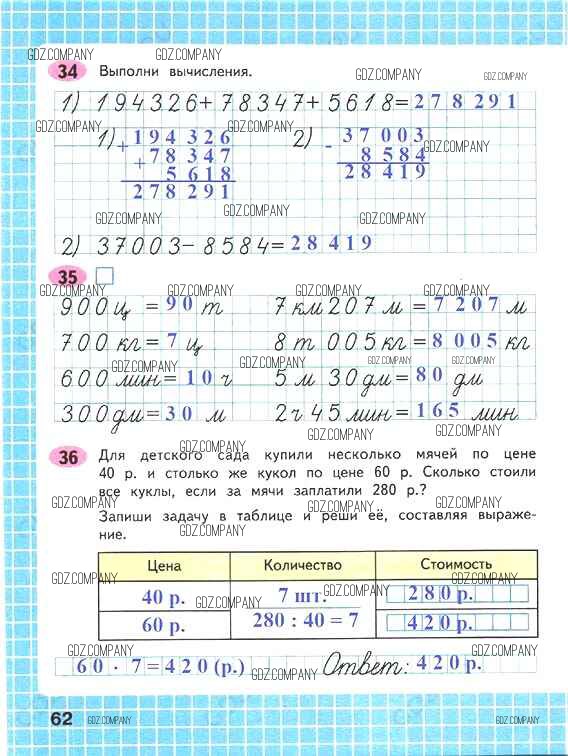 GDZ.COMPANY GDZ.COMPANY
34 Выполни вычисления.
GDZ.COMPANY GDZ.COMPANY
1) 194326+78347+5618=278291
GDZ.COMPANY GDZ.COMPANY
1) +194326 2) -37003
+78347 8584 GDZ.COMPANY
5618 28419
278291
GDZ.COMPANY GDZ.COMPANY
2) 37003-8584=28419
35
GDZ.COMPANY GDZ.COMPANY GDZ.COMPANY GDZ.COMPANY
900 ц = 90 т 7 км 207 м = 7207 м
700 кг = 7 ц 8 т 005 кг = 8005 кг
GDZ.COMPANY GDZ.COMPANY GDZ.COMPANY GDZ.COMPANY
600 мин = 10 ч 5 м 30 дм = 80 дм
300 дм = 30 м 2 ч 45 мин = 165 мин
GDZ.COMPANY GDZ.COMPANY GDZ.COMPANY
36 Для детского сада купили несколько мячей по цене
40 р. и столько же кукол по цене 60 р. Сколько стоили
все куклы, если за мячи заплатили 280 р.?
GDZ.COMPANY GDZ.COMPANY
Запиши задачу в таблице и реши её, составляя выраже-
ние.
GDZ.COMPANY
Цена Количество Стоимость
GDZ.COMPANY GDZ.COMPANY
40 р. 7 шт. 280 р.
GDZ.COMPANY GDZ.COMPANY
60 р. 280 : 40 = 7 420 р.
GDZ.COMPANY GDZ.COMPANY
60 · 7 = 420 (р.) Ответ: 420 р.
GDZ.COMPANY GDZ.COMPANY
62 GDZ.COMPANY